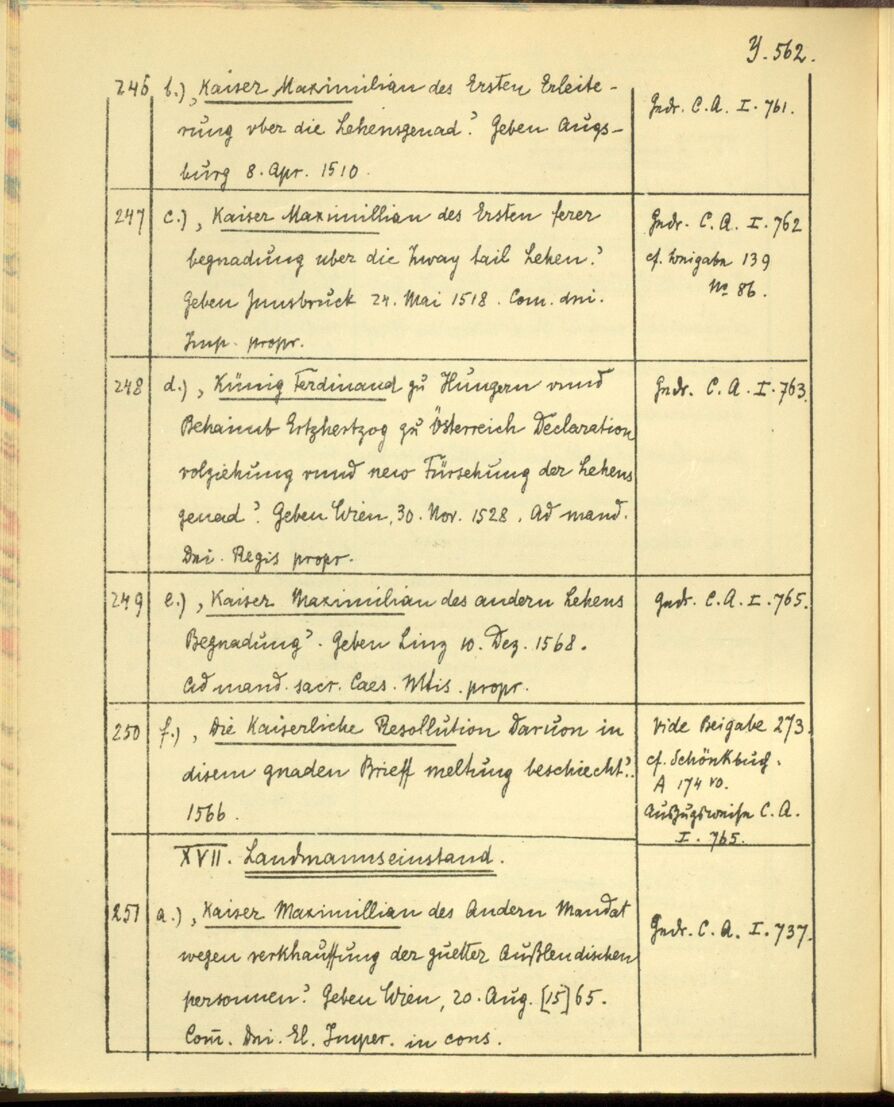 Y. 562.
246 b.) „Kaiser Maximilian des Ersten Erleite-
rung vber die Lehensgenad“. Geben Augs-
burg 8. Apr. 1510.
Gedr. C. A. I. 761.
247 c.) „Kaiser Maximillian des Ersten ferer
begnadung uber die Zway tail Lehen.“
Geben Innsbruck 24. Mai 1518. Com. dni.
Imp. propr.
Gedr. C. A. I. 762
cf. 139
No 86.
248 d.) „Künig Ferdinand zu Hungern vnnd
Behaimb Ertzhertzog zu Österreich Declaration
volziehung vnnd new Fürsehung der Lehens
genad“. Geben Wien, 30. Nov. 1528. Ad mand.
Dni. Regis propr.
Gedr. C. A. I. 763.
249 e.) „Kaiser Maximilian des andern Lehens
Begnadung“. Geben Linz 10. Dez. 1568.
Ad mand. sacr. Caes. Mtis. propr.
Gedr. C. A. I. 765.
250 f.) „Die Kaiserliche Resollution Daruon in
disem gnaden Brieff meltung beschiecht“.
1566.
Vide Beigabe 273.
cf. Schönkbuch.
A 174 vo.
Auszugsweise C. A.
I. 765.
XVII. Landmannseinstand.
251 a.) „Kaiser Maximillian des Andern Mandat
wegen verkhauffung der guetter Außlendischen
personnen“. Geben Wien, 20. Aug. [15]65.
Com̄. Dni. El. Imper. in cons.
Gedr. C. A. I. 737.